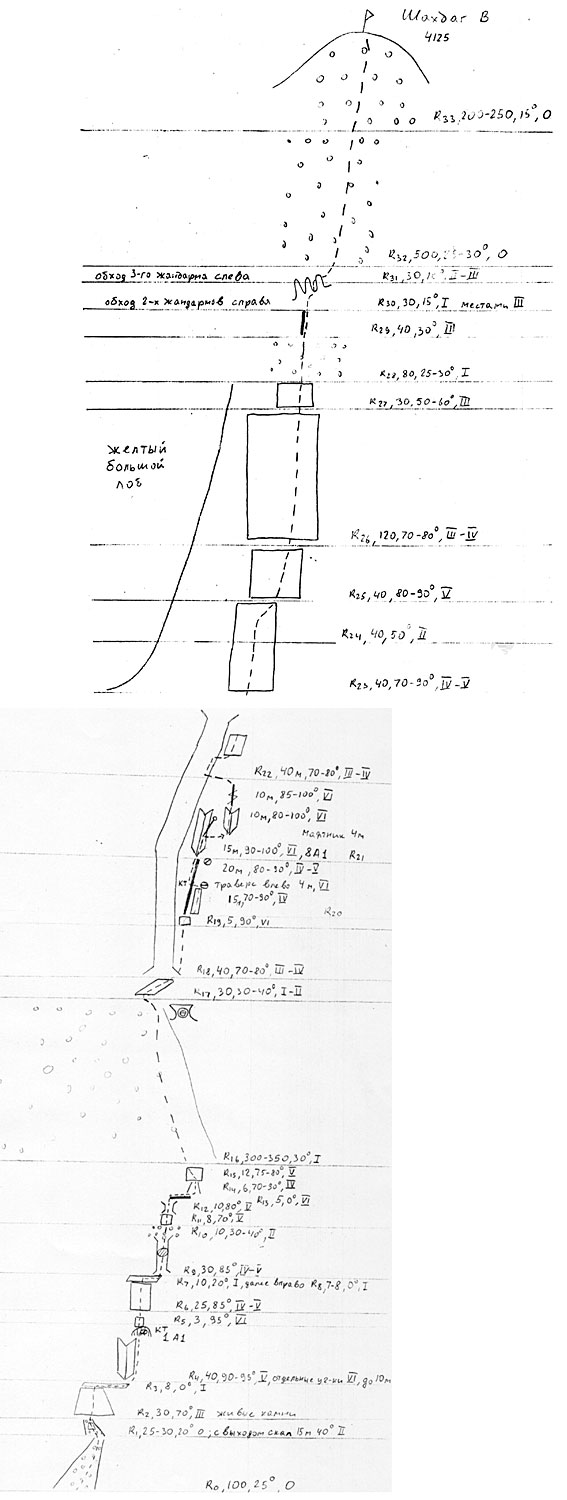 Шахдаг В
4125
R33, 200-250, 15°, 0
R32, 500, 25-30°, 0
обход 3-го жандарма слева
R31, 30, 10°, I-III
обход 2-х жандармов справа
R30, 30, 15°, I местами III
R29, 40, 30°, III
R28, 80, 25-30°, I
R27, 30, 50-60°, III
желтый
большой
лоб
R26, 120, 70-80°, III-IV
R25, 40, 80-90°, V
R24, 40, 50°, II
R23, 40, 70-90°, IV-V
R22, 40м, 70-80°, III-IV
10м, 85-100°, VI
10м, 80-100°, VI
маятник 4м
15м, 90-100°, VI, 8А1 R21
20м, 80-90°, IV-V
КТ траверс влево 4м, VI
15, 70-90°, IV
R20
R19, 5, 90°, VI
R18, 40, 70-80°, III-IV
R17, 30, 30-40°, I-II
R16, 300-350, 30°, I
R15, 12, 75-80°, V
R14, 6, 70-90°, IV
R13, 5, 0°, VI
R12, 10, 80°, V
R11, 8, 70°, V
R10, 10, 30-40°, II
R9, 30, 85°, IV-V
R7, 10, 20°, I, далее вправо R8, 7-8, 0°, I
R6, 25, 85°, IV-V
R5, 3, 95°, VI
КТ
1 А1
R4, 40, 90-95°, V, отдельные уч-ки VI, до 10м
R3, 8, 0°, I
R2, 30, 70°, III живые камни
R1, 25-30, 20° 0; с выходом скал 15м 40° II
R0, 100, 25°, 0